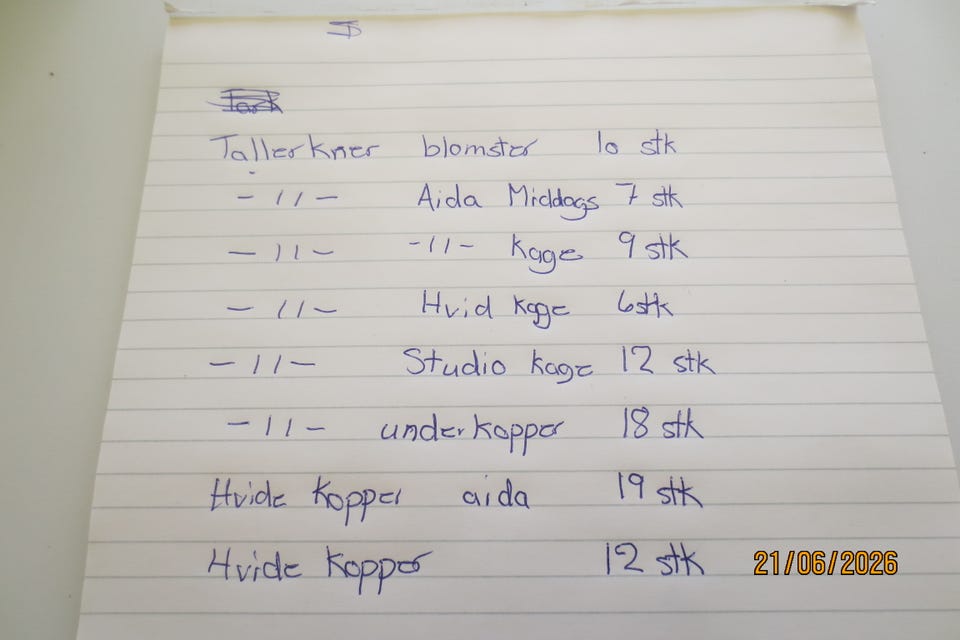 Tallerkner blomster 10 stk
- 11 - Aida Middags 7 stk
- 11 - - 11 - Kage 9 stk
- 11 - Hvid Kage 6 stk
- 11 - Studio Kage 12 stk
- 11 - underkopper 18 stk
Hvide Kopper aida 19 stk
Hvide Kopper 12 stk
21/06/2026